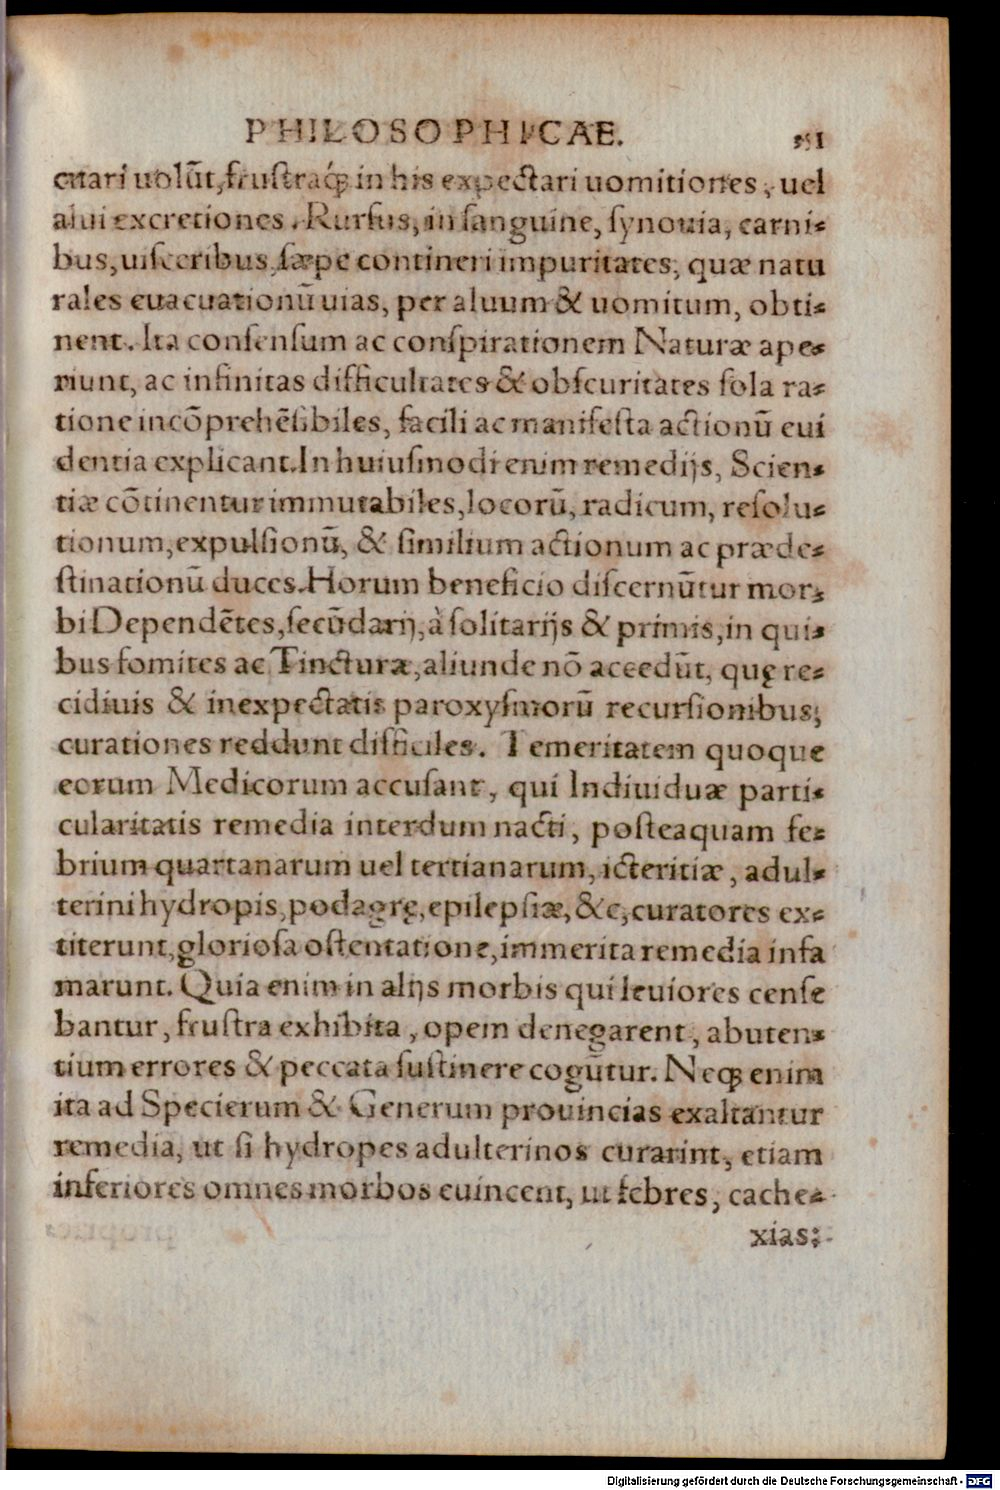 PHILOSOPHICAE. 151
citari uolūt, frustraq́; in his expectari uomitiones, uel
alui excretiones. Rursus, in sanguine, synouia, carni⸗
bus, uisceribus, sæpe contineri impuritates, quæ natu
rales euacuationū uias, per aluum & uomitum, obti⸗
nent. Ita consensum ac conspirationem Naturæ ape⸗
riunt, ac infinitas difficultates & obscuritates sola ra⸗
tione incōprehēsibiles, facili ac manifesta actionū eui
dentia explicant. In huiusmodi enim remedijs, Scien⸗
tiæ cōtinentur immutabiles, locorū, radicum, resolu⸗
tionum, expulsionū, & similium actionum ac præde⸗
stinationū duces. Horum beneficio discernūtur mor⸗
bi Dependētes, secūdarij, à solitarijs & primis, in qui⸗
bus fomites ac Tincturæ, aliunde nō accedūt, quę re⸗
cidiuis & inexpectatis paroxysmorū recursionibus,
curationes reddunt difficiles. Temeritatem quoque
eorum Medicorum accusant, qui Indiuiduæ parti⸗
cularitatis remedia interdum nacti, posteaquam fe⸗
brium quartanarum uel tertianarum, icteritiæ, adul⸗
terini hydropis, podagrę, epilepsiæ, &c, curatores ex⸗
titerunt, gloriosa ostentatione, immerita remedia infa
marunt. Quia enim in alijs morbis qui leuiores cense
bantur, frustra exhibita, opem denegarent, abuten⸗
tium errores & peccata sustinere cogūtur. Neq; enim
ita ad Specierum & Generum prouincias exaltantur
remedia, ut si hydropes adulterinos curarint, etiam
inferiores omnes morbos euincent, ut febres, cache⸗
xias:
Digitalisierung gefördert durch die Deutsche Forschungsgemeinschaft - DFG